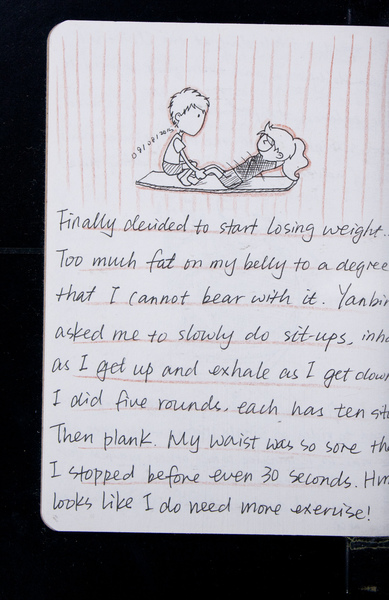 09/08/2015
Finally decided to start losing weight..
Too much fat on my belly to a degree
that I cannot bear with it. Yanbin
asked me to slowly do sit-ups, inha
as I get up and exhale as I get down
I did five rounds, each has ten sit
Then plank. My waist was so sore tha
I stopped before even 30 seconds. Hm
looks like I do need more exercise!